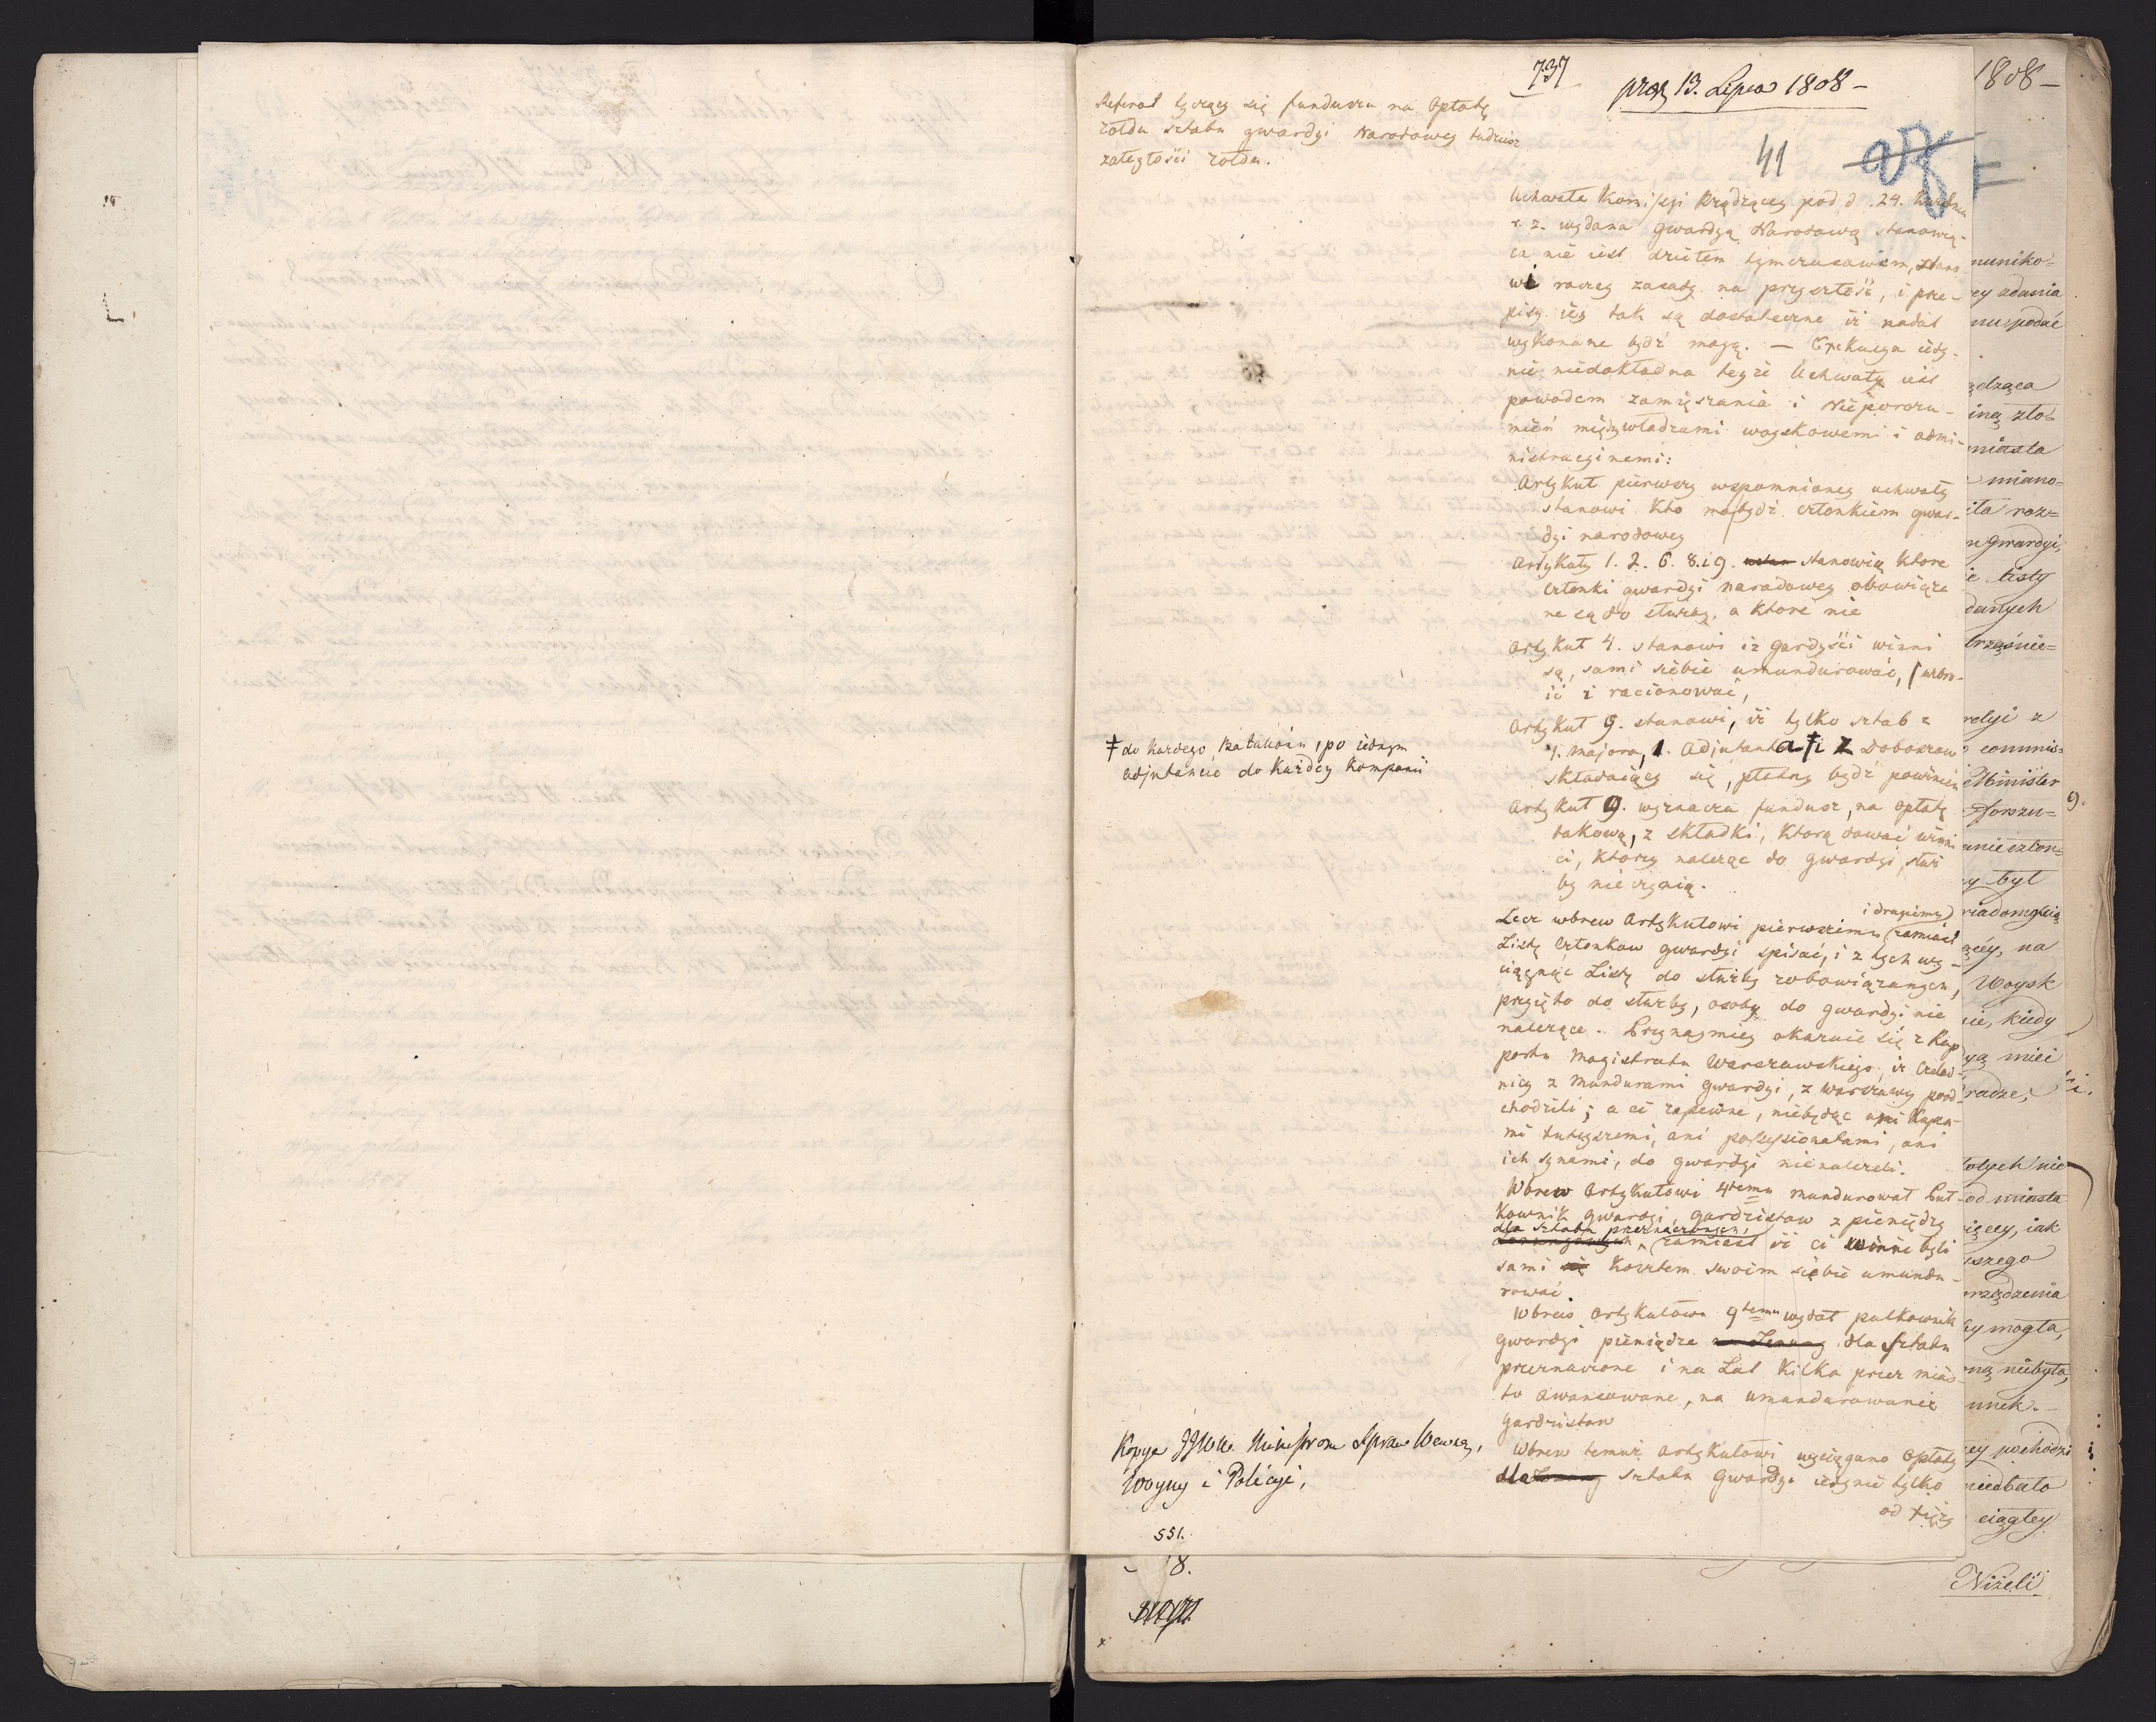 737
prąz 13. Lipca 1808 –
41
Referat tyczący się funduszu na Opłatę
żołdu sztabu gwardyi Narodowey tudzież
zaległości żołdu.
Uchwała Kommissyi Rządzącey pod d. 24. Kwietnia
r. z. wydana gwardyą Narodową stanowią-
ca nie iest dziełem tymczasowem, stano
wi raczey zasadę na przyszłość, i prze-
pisy iey tak są dostateczne iż nadal
wykonane bydź mogą. — Exekucya iedy-
nie niedokładna teyże Uchwały iest
powodem zamięszania i Nieporozu-
mień między władzami woyskowemi i admi-
nistracyinemi:
Artykuł pierwszy wspomnioney uchwały
stanowi Kto ma bydź członkiem gwar-
dyi narodowey
Artykuły 1. 2. 6. 8. i 9. stanowią które
członki gwardyi narodowey obowiąza
ne są do służby, a które nie
Artykuł 4. stanowi iż gardyści winni
są, sami siebie umundurować, uzbro-
ić i racionować,
Artykuł 9. stanowi, iż tylko sztab z
1. majora, 1. Adjutanta ‡ i 2 Doboszow
składaiący się, płatny bydź powinien
‡ do każdego Batalionu, po iednym
adjutancie do każdey Kompanii
Artykuł 9. wyznacza fundusz, na opłatę
takową, z składki, którą dawać winni
ci, którzy należąc do gwardyi, służ
by nie czynią.
Lecz wbrew Artykułowi pierwszemu i drugiemu zamiast
Listę Członkow gwardyi spisać, i z tych wy-
ciągnąć Listę do służby zobowiązanych,
przyięto do służby, osoby do gwardyi nie
należące. Przynaymniey okazuie się z Rap
portu Magistratu Warszawskiego, iż Czelad-
nicy z mundurami gwardyi, z Warszawy pood-
chodzili; a ci zapewne, niebędąc ani Kupca-
mi tuteyszemi, ani possessionatami, ani
ich synami, do gwardyi nienależeli.
Wbrew Artykułowi 4temu mundurował Puł-
kownik gwardyi gardzistow z pieniędzy
dla sztabu przeznaczonych, zamiast iż ci winni byli
sami kosztem swoim siebie umundu-
rować.
Wbrew Artykułowi 9temu wydał pułkownik
gwardyi pieniądze dla sztabu
przeznaczone i na Lat Kilka przez mias-
to awansowane, na umundurowanie
gardzistow
Wbrew temuż artykułowi wyciągano Opłatę
dla sztabu gwardyi iedynie tylko
od tychże
Kopye JJWW. Ministrom Spraw Wewnę,
Woyny i Policyi,
551.
8.
1808 –
muniko=
ey zdania
mu podać
ządząca
miasta
miano=
n gwardyi,
ie listy
danych
rdyi z
commis=
Minister
9.
y był
na
Woysk
ie, kiedy
mieć
radze,
od miasta
iak
iszego
rządzenia
by mogła,
niebyła,
unek.
ey pochodzi
ciągłey
Niżeli